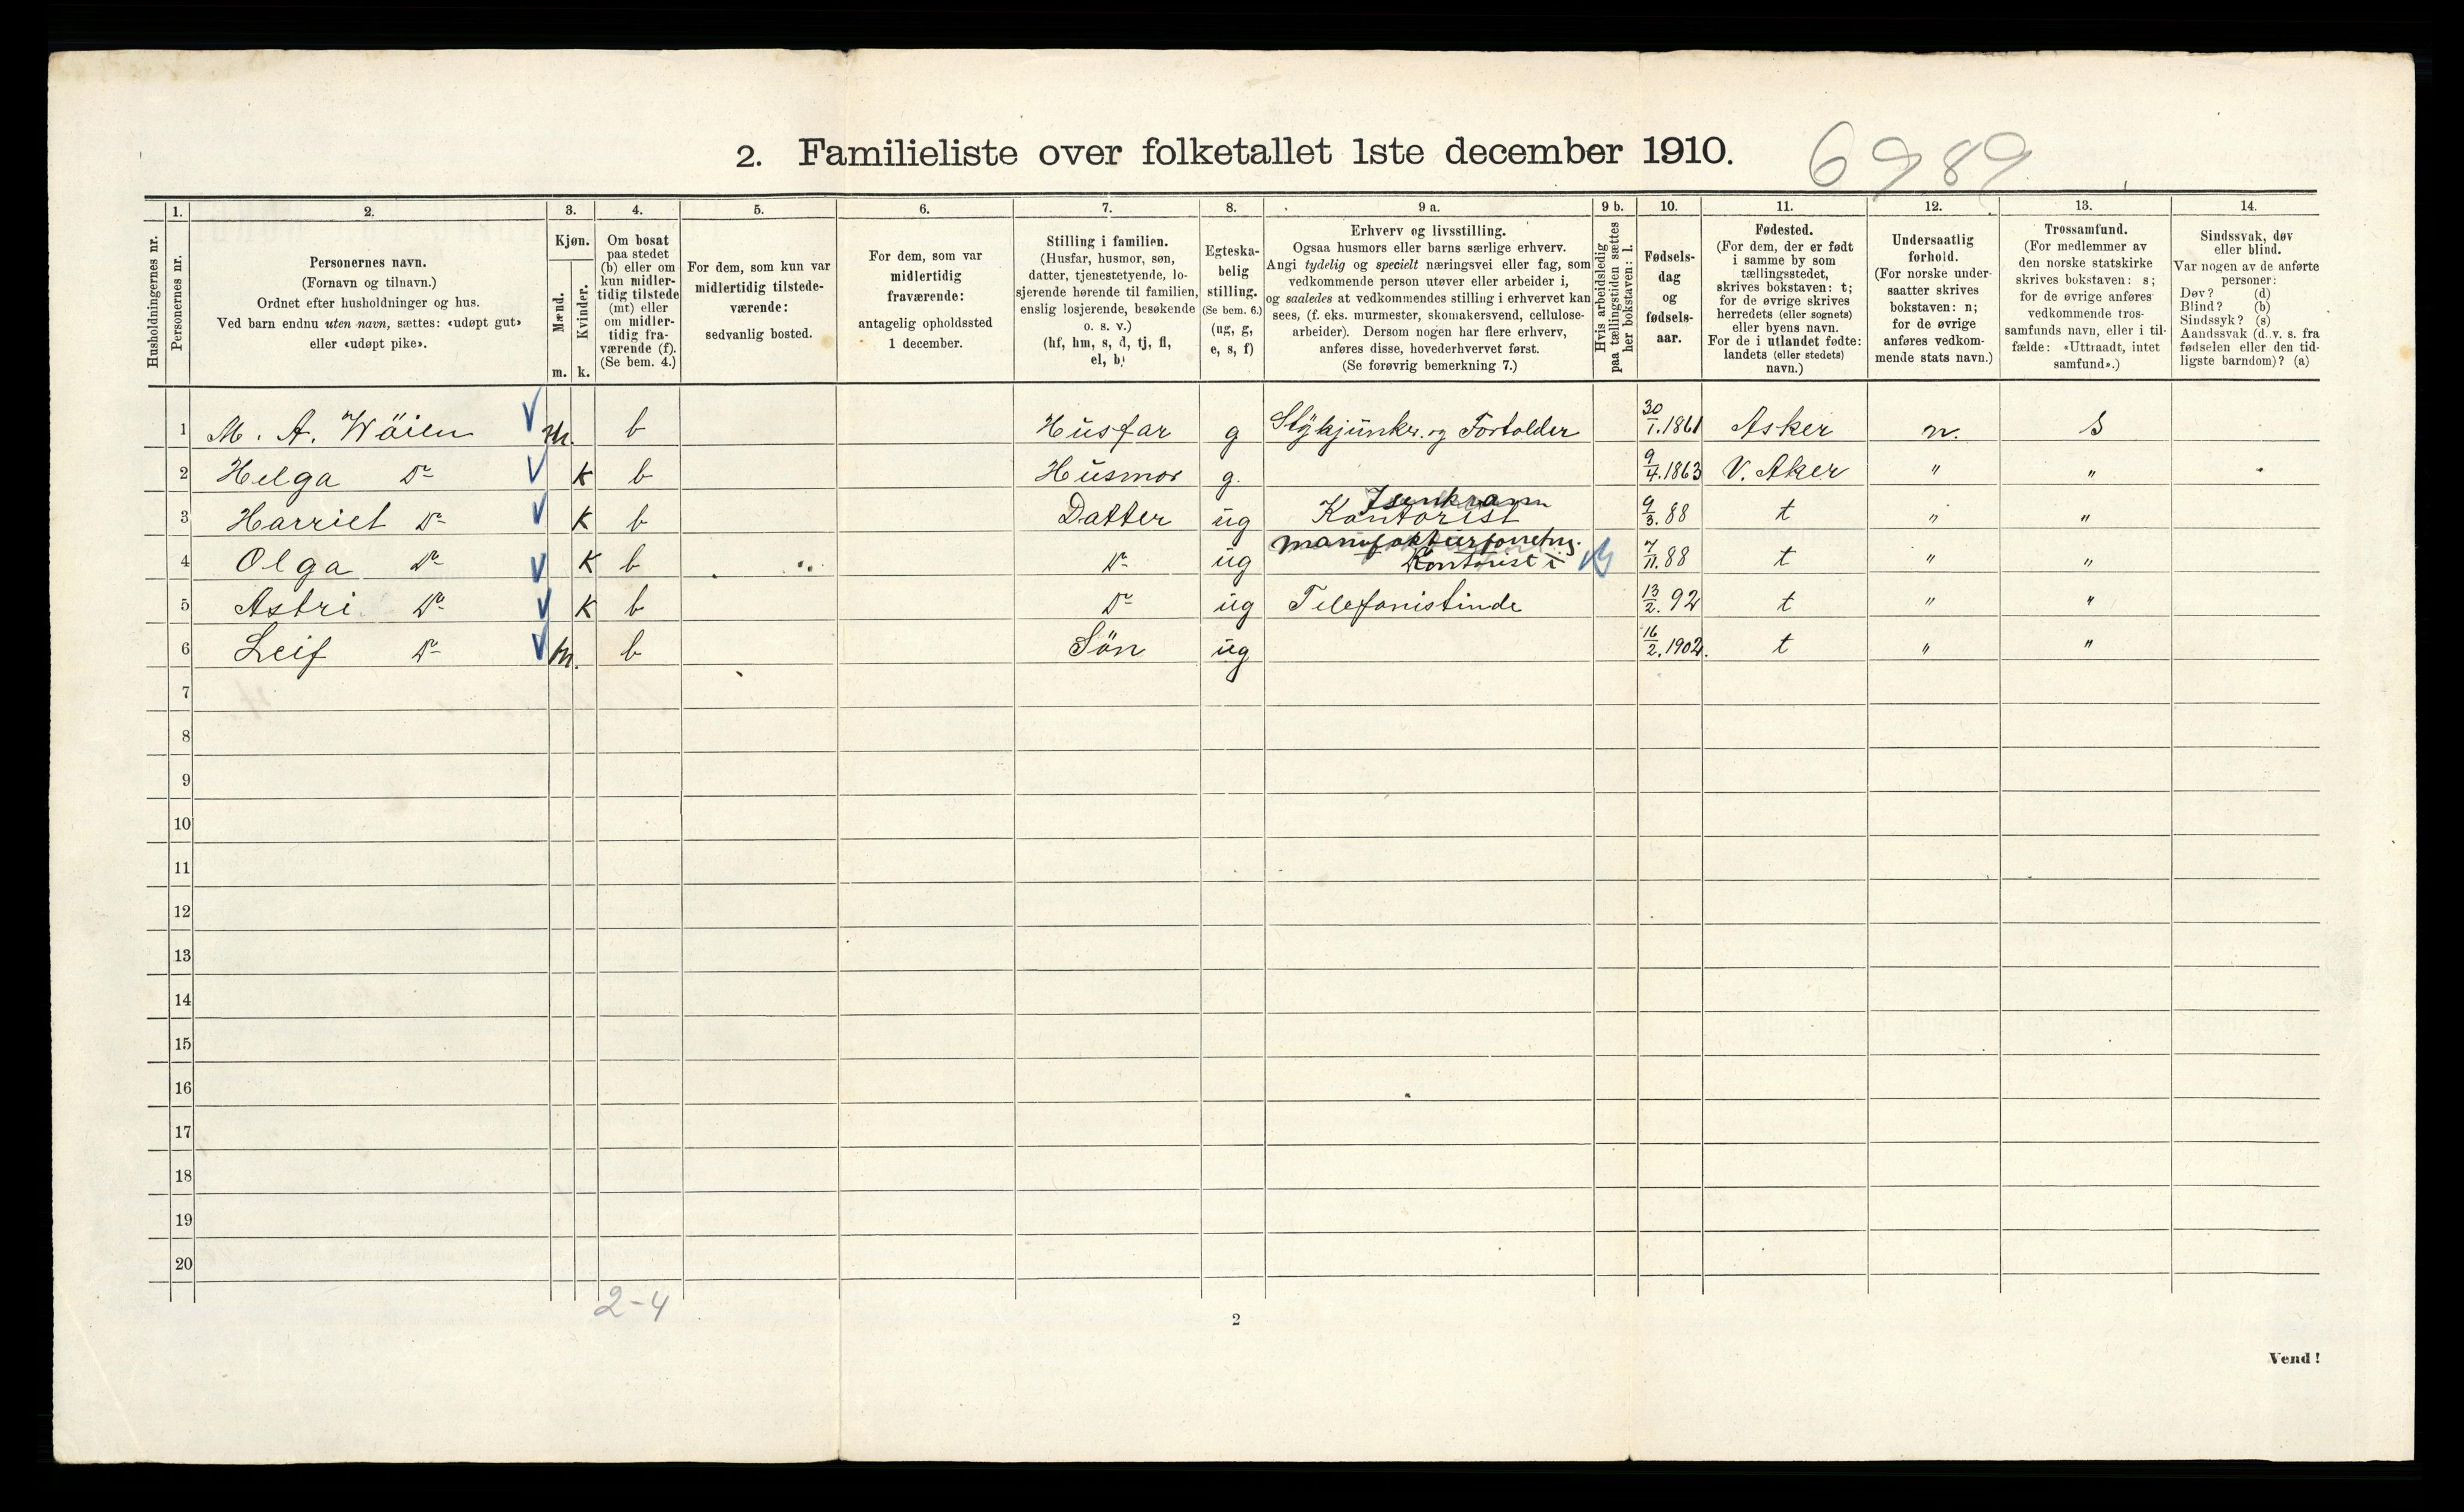 2. Familieliste over folketallet 1ste december 1910.
6989
1. 2. 3. 4. 5. 6. 7. 8. 9 a. 9 b. 10. 11. 12. 13. 14.
Husholdningernes nr.
Personernes nr.
Personernes navn.
(Fornavn og tilnavn.)
Ordnet efter husholdninger og hus.
Ved barn endnu uten navn, sættes: «udøpt gut»
eller «udøpt pike».
Kjøn.
Mænd.
Kvinder.
m. k.
Om bosat
paa stedet
(b) eller om
kun midler-
tidig tilstede
(mt) eller
om midler-
tidig fra-
værende (f).
(Se bem. 4.)
For dem, som kun var
midlertidig tilstede-
værende:
sedvanlig bosted.
For dem, som var
midlertidig
fraværende:
antagelig opholdssted
1 december.
Stilling i familien.
(Husfar, husmor, søn,
datter, tjenestetyende, lo-
sjerende hørende til familien,
enslig losjerende, besøkende
o. s. v.)
(hf, hm, s, d, tj, fl,
el, b)
Egteska-
belig
stilling.
(Se bem. 6.)
(ug, g,
e, s, f)
Erhverv og livsstilling.
Ogsaa husmors eller barns særlige erhverv.
Angi tydelig og specielt næringsvei eller fag, som
vedkommende person utøver eller arbeider i,
og saaledes at vedkommendes stilling i erhvervet kan
sees, (f. eks. murmester, skomakersvend, cellulose-
arbeider). Dersom nogen har flere erhverv,
anføres disse, hovederhvervet først.
(Se forøvrig bemerkning 7.)
Hvis arbeidsledig
paa tællingstiden sættes
her bokstaven: l.
Fødsels-
dag
og
fødsels-
aar.
Fødested.
(For dem, der er født
i samme by som
tællingsstedet,
skrives bokstaven: t;
for de øvrige skrives
herredets (eller sognets)
eller byens navn.
For de i utlandet fødte:
landets (eller stedets)
navn.)
Undersaatlig
forhold.
(For norske under-
saatter skrives
bokstaven: n;
for de øvrige
anføres vedkom-
mende stats navn.)
Trossamfund.
(For medlemmer av
den norske statskirke
skrives bokstaven: s;
for de øvrige anføres
vedkommende tros-
samfunds navn, eller i til-
fælde: «Uttraadt, intet
samfund».)
Sindssvak, døv
eller blind.
Var nogen av de anførte
personer:
Døv? (d)
Blind? (b)
Sindssyk? (s)
Aandssvak (d. v. s. fra
fødselen eller den tid-
ligste barndom)? (a)
1 M. A. Wöien m. b Husfar g Stykjunker og Fortolder 30/1.1861 Asker n. s
2 Helga Do K b Husmor g. 9/4.1863 V. Aker " "
Isenkram
3 Harriet Do K b Datter ug Kontorist 9/3.88 t " "
manufakturforretng.
4 Olga Do K b Do ug Kontorist i 7/11.88 t " "
5 Astri Do K b Do ug Telefonistinde 13/2.92 t " "
6 Leif Do m. b Sön ug 16/2.1902. t " "
7
8
9
10
11
12
13
14
15
16
17
18
19
20
2-4
2
Vend!